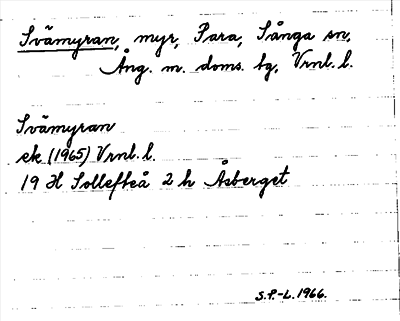 Svämyran, myr, Para, Sånga sn,
Ång. m. doms. bg, Vrnl. l.
Svämyran
ek (1965) Vrnl. l.
19 H Sollefteå 2 h Åsberget
S.P.-L. 1966.